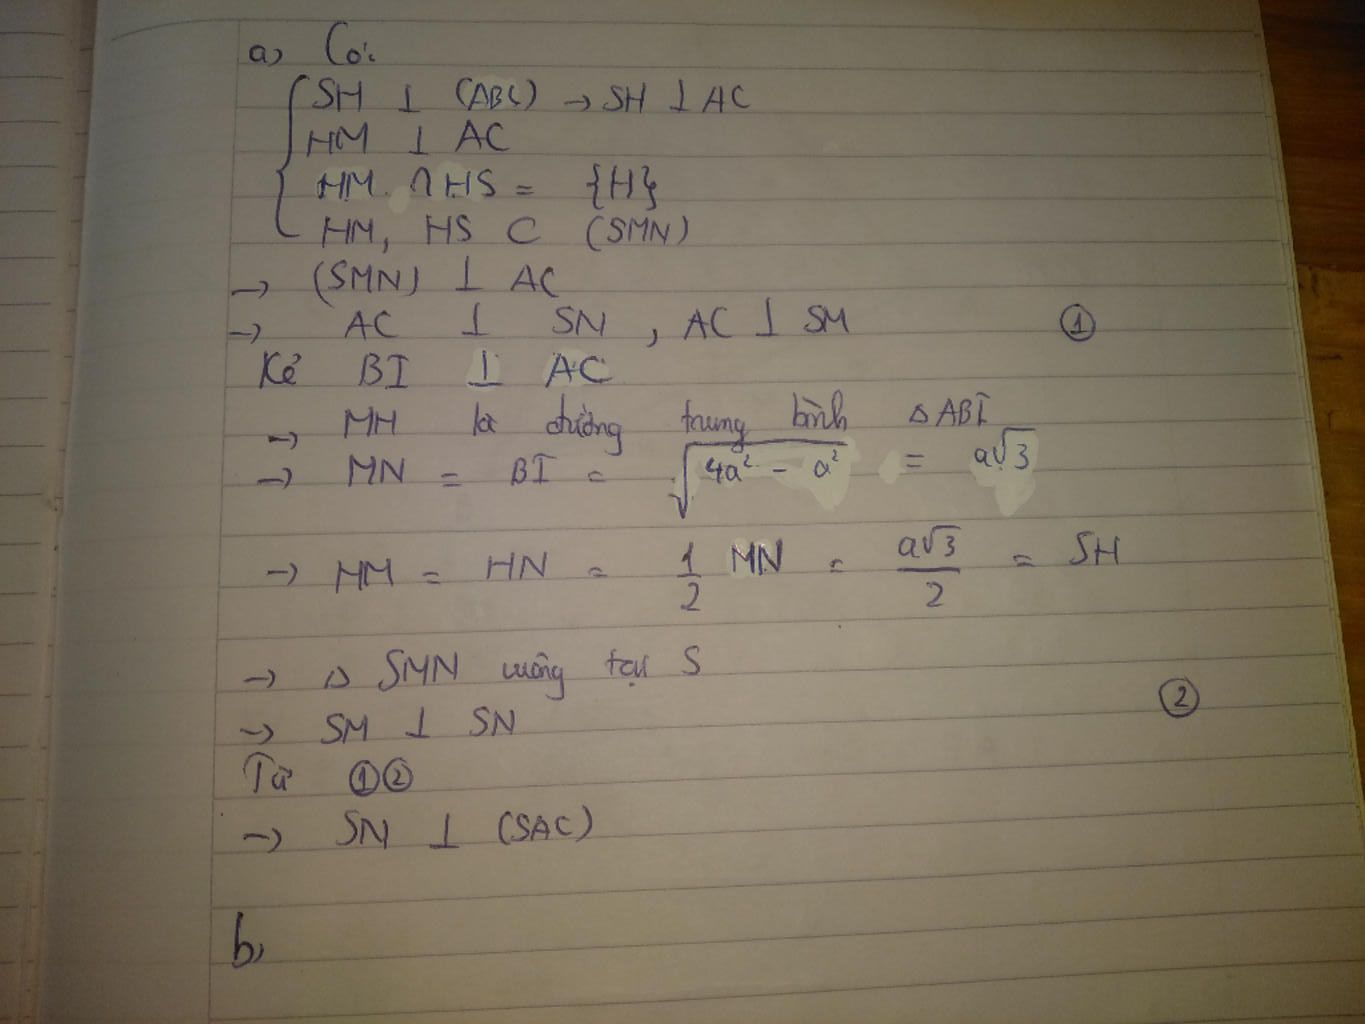 a) Có:
SH ⊥ (ABC) → SH ⊥ AC
HM ⊥ AC
HM ∩ HS = {H}
HM, HS ⊂ (SMN)
→ (SMN) ⊥ AC
→ AC ⊥ SN , AC ⊥ SM ①
Kẻ BI ⊥ AC
→ MH là đường trung bình △ ABI
→ MN = BI = √(4a² - a²) = a√3
→ HM = HN = 1/2 MN = a√3/2 = SH
→ △ SMN vuông tại S
→ SM ⊥ SN ②
Từ ①②
→ SN ⊥ (SAC)
b,